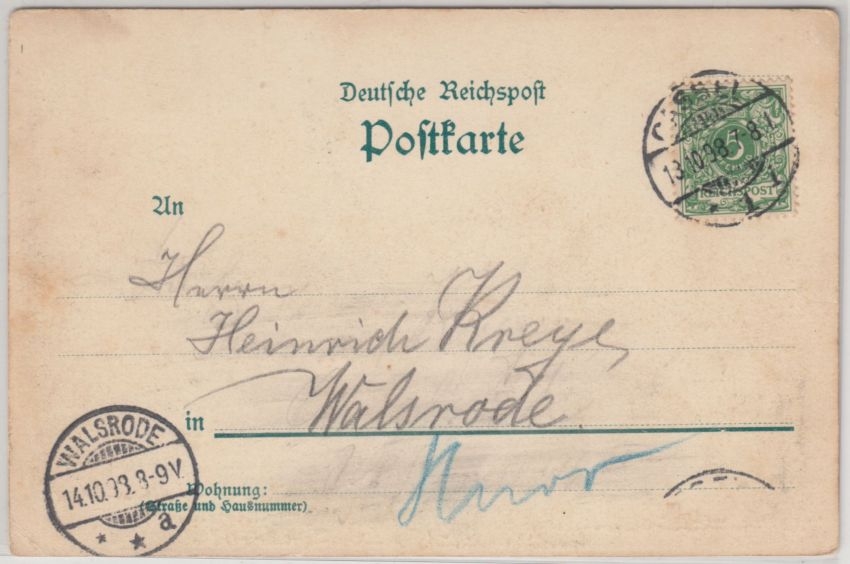 Deutsche Reichspost
Postkarte
CASSEL
13.10.98. 7-8 V.
1
5
REICHSPOST
An
Herrn
Heinrich Kreye,
in Walsrode.
WALSRODE
14.10.98. 8-9 V.
* * a
Wohnung:
(Straße und Hausnummer)